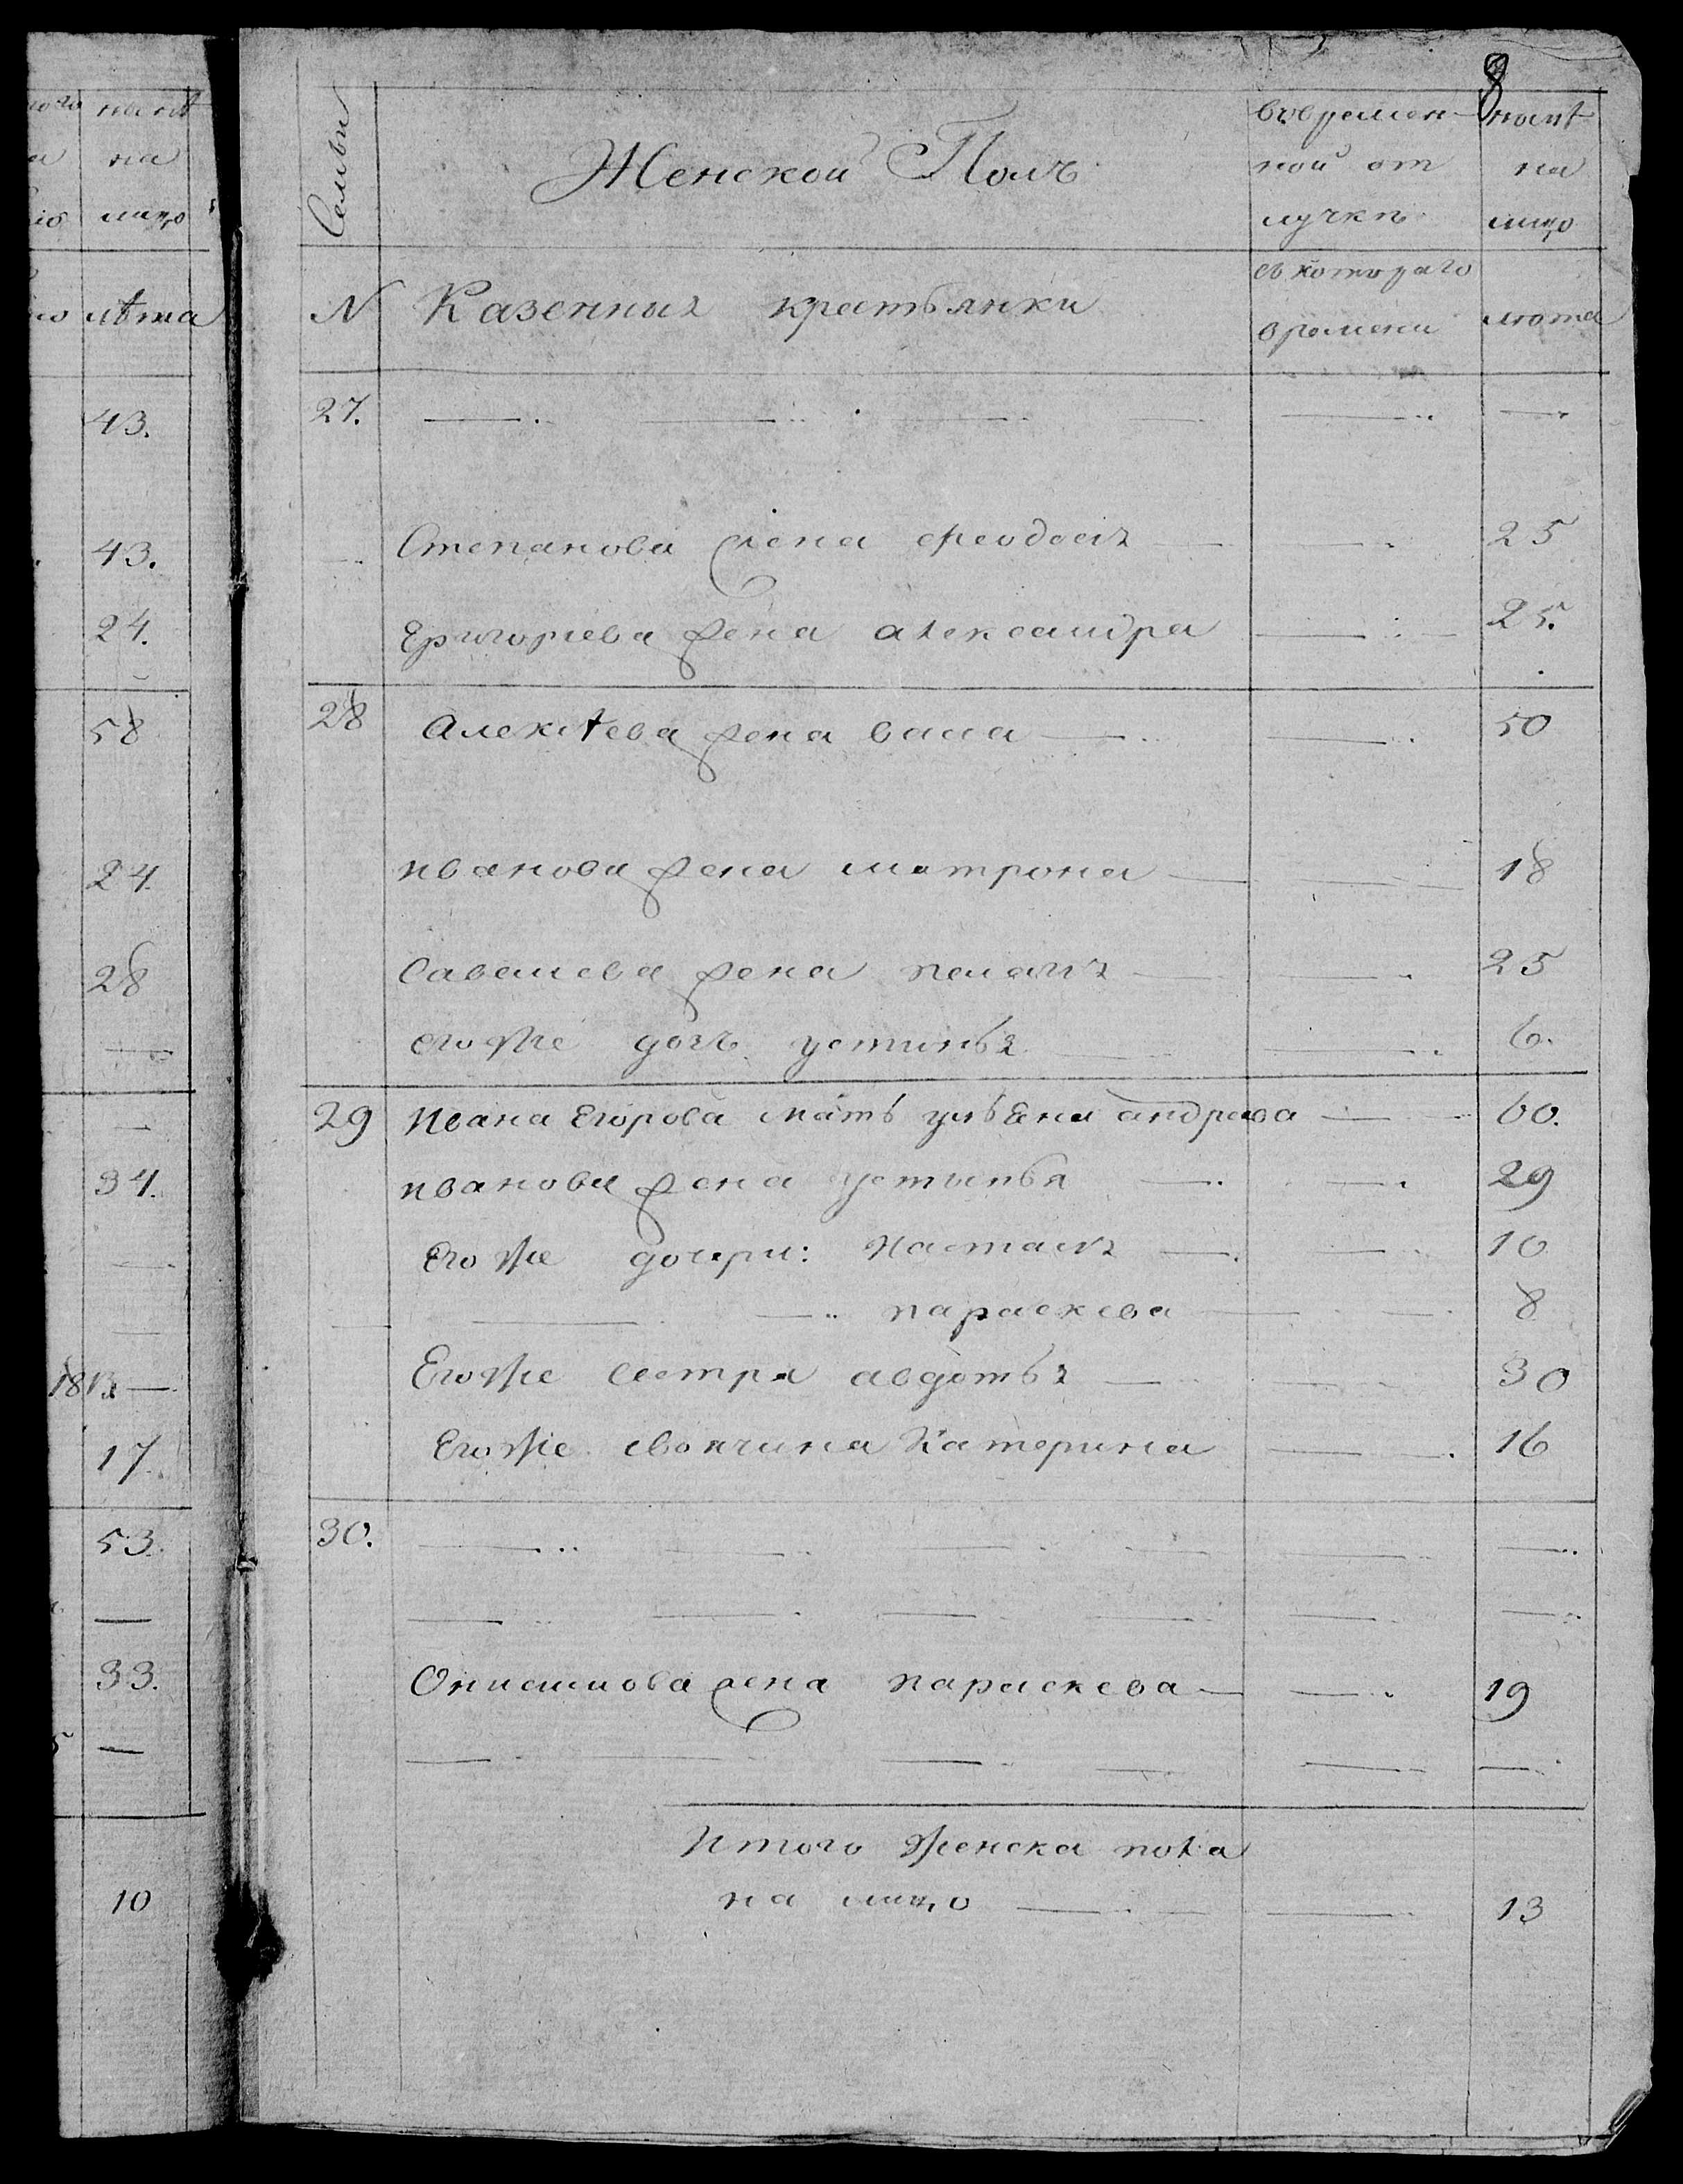 8
Семьи
Женской Полъ
вовремен
ной от
лучкѣ
нынѣ
на
лицо
N Казенныя крестьянки
съ котораго
времени
лѣта
27.
Степанова жена Феодосия 25
Григорьева жена александра 25.
28 Алексѣева жена васса 50
иванова жена матрона 18
Савельева жена пелагия 25
его же дочь устинья 6.
29 Ивана Егорова мать ульяна андреева 60.
иванова жена устинья 29
Его же дочери: Настасия 10
параскева 8
Его же сестра авдотья 30
Его же своячина Катерина 16
30.
Онисимова жена параскева 19
Итого женска пола
на лицо 13
нынѣ
на
лицо
лѣта
43.
43.
24.
58
24.
28
34.
1813
17.
53.
33.
10